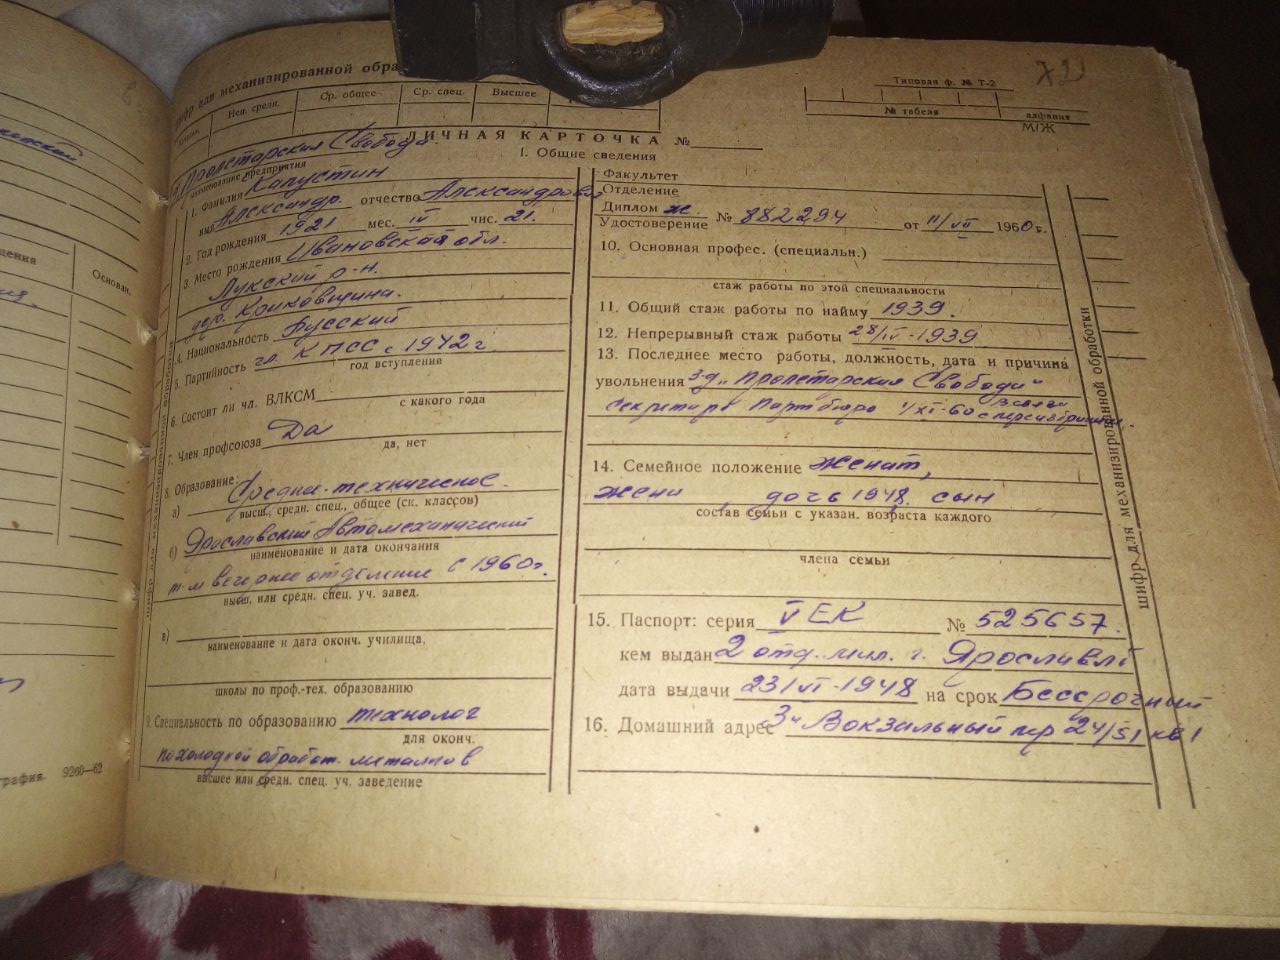 шифр для механизированной обра
Типовая ф. № Т-2
Неп. средн.
Ср. общее
Ср. спец.
Высшее
№ табеля
алфавит
М/Ж
ЛИЧНАЯ КАРТОЧКА №
Пролетарския Свобода
наименование предприятия
I. Общие сведения
1. Фамилия Капустин
имя Александр. отчество Александрович
2. Год рождения 1921 мес. IV чис. 21.
3. Место рождения Ивановская обл.
Лухский р-н.
дер. Крюковщина.
4. Национальность Русский
5. Партийность чл. КПСС с 1942 г
год вступления
6. Состоит ли чл. ВЛКСМ
с какого года
7. Член профсоюза Да
да, нет
8. Образование:
а) Средне-техническое.
высш., средн. спец., общее (ск. классов)
б) Ярославский Автомеханический
наименование и дата окончания
т-м вечернее отделение с 1960г.
высш. или средн. спец. уч. завед.
в)
наименование и дата оконч. училища,
школы по проф.-тех. образованию
9. Специальность по образованию технолог
для оконч.
по холодной обработ. металлов
высшее или средн. спец. уч. заведение
Факультет
Отделение
Диплом
Удостоверение № 882294 от 11/VII 1960 г.
10. Основная профес. (специальн.)
стаж работы по этой специальности
11. Общий стаж работы по найму 1939.
12. Непрерывный стаж работы 28/IV-1939
13. Последнее место работы, должность, дата и причина
увольнения з-д „Пролетарския Свобода"
Секретарь Партбюро 1/XI-60 в связи
с переизбранием.
14. Семейное положение женат,
жена , дочь 1948, сын
состав семьи с указан. возраста каждого
члена семьи
15. Паспорт: серия V ЕК № 525657.
кем выдан 2 отд. мил. г. Ярославля
дата выдачи 23/VI-1948 на срок Бессрочный
16. Домашний адрес Вокзальный пр 24/51 кв 1
шифр для механизированной обработки
графия. 9200—62
щения
Основан.